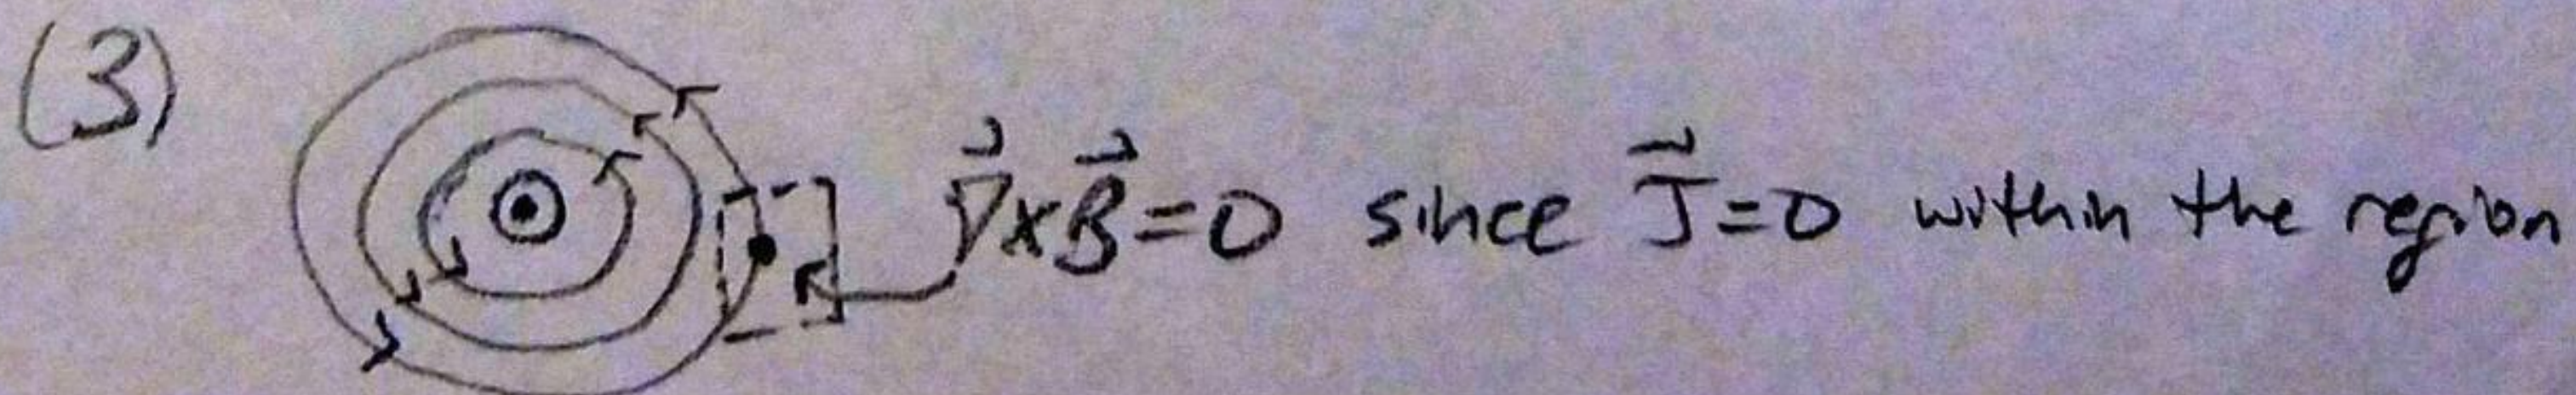 (3) ∇⃗×B⃗=0 since J⃗=0 within the region